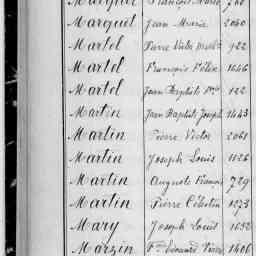 François Marie
Marquet Jean Marie 2040
Martel Pierre Victor 922
Martel François Félix 1646
Martel Jean Baptiste 122
Martin Jean Baptiste Joseph 1443
Martin Pierre Victor 2061
Martin Joseph Louis 1126
Martin Auguste François 729
Martin Pierre Célestin 1273
Mary Joseph Louis 1652
Marzin Edouard 1406